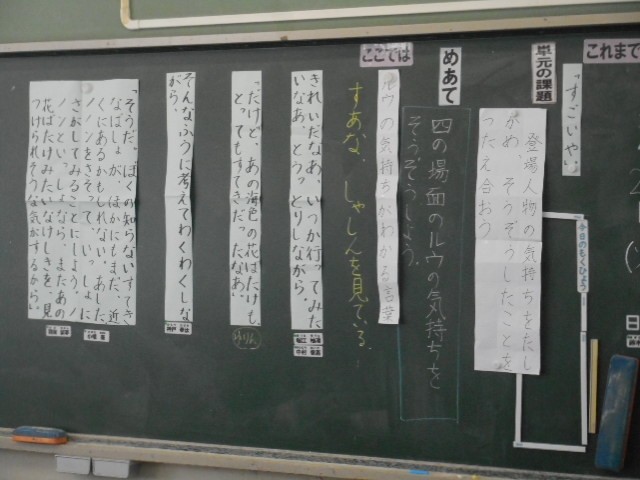 これまで
「すごいやい
単元の課題
登場人物の気持ちをたし
かめ、そうぞうしたことを
つたえ合おう
今日のもくひょう
めあて
四の場面のルウの気持ちを
そうぞうしよう。
ここでは
ルウの気持ちがわかる言葉
すあな、しゃしんを見ている。
きれいだなあ、いつか行ってみた
いなあ、とうっとりしながら。
「だけど、あの海色の花ばたけも、
とってもすてきだったなあ。
そんなふうに考えてわくわくしな
がら。
「そうだ、ぼくの知らないすてき
なばしょが、ほかにもまだ、近
くにあるかもしれない。あした
ノノンをさそって、いっしょに
さがしてみることにしよう。ノ
ノンといっしょなら、またあの
花ばたけみたいなけしきを、見
つけられそうな気がするから。